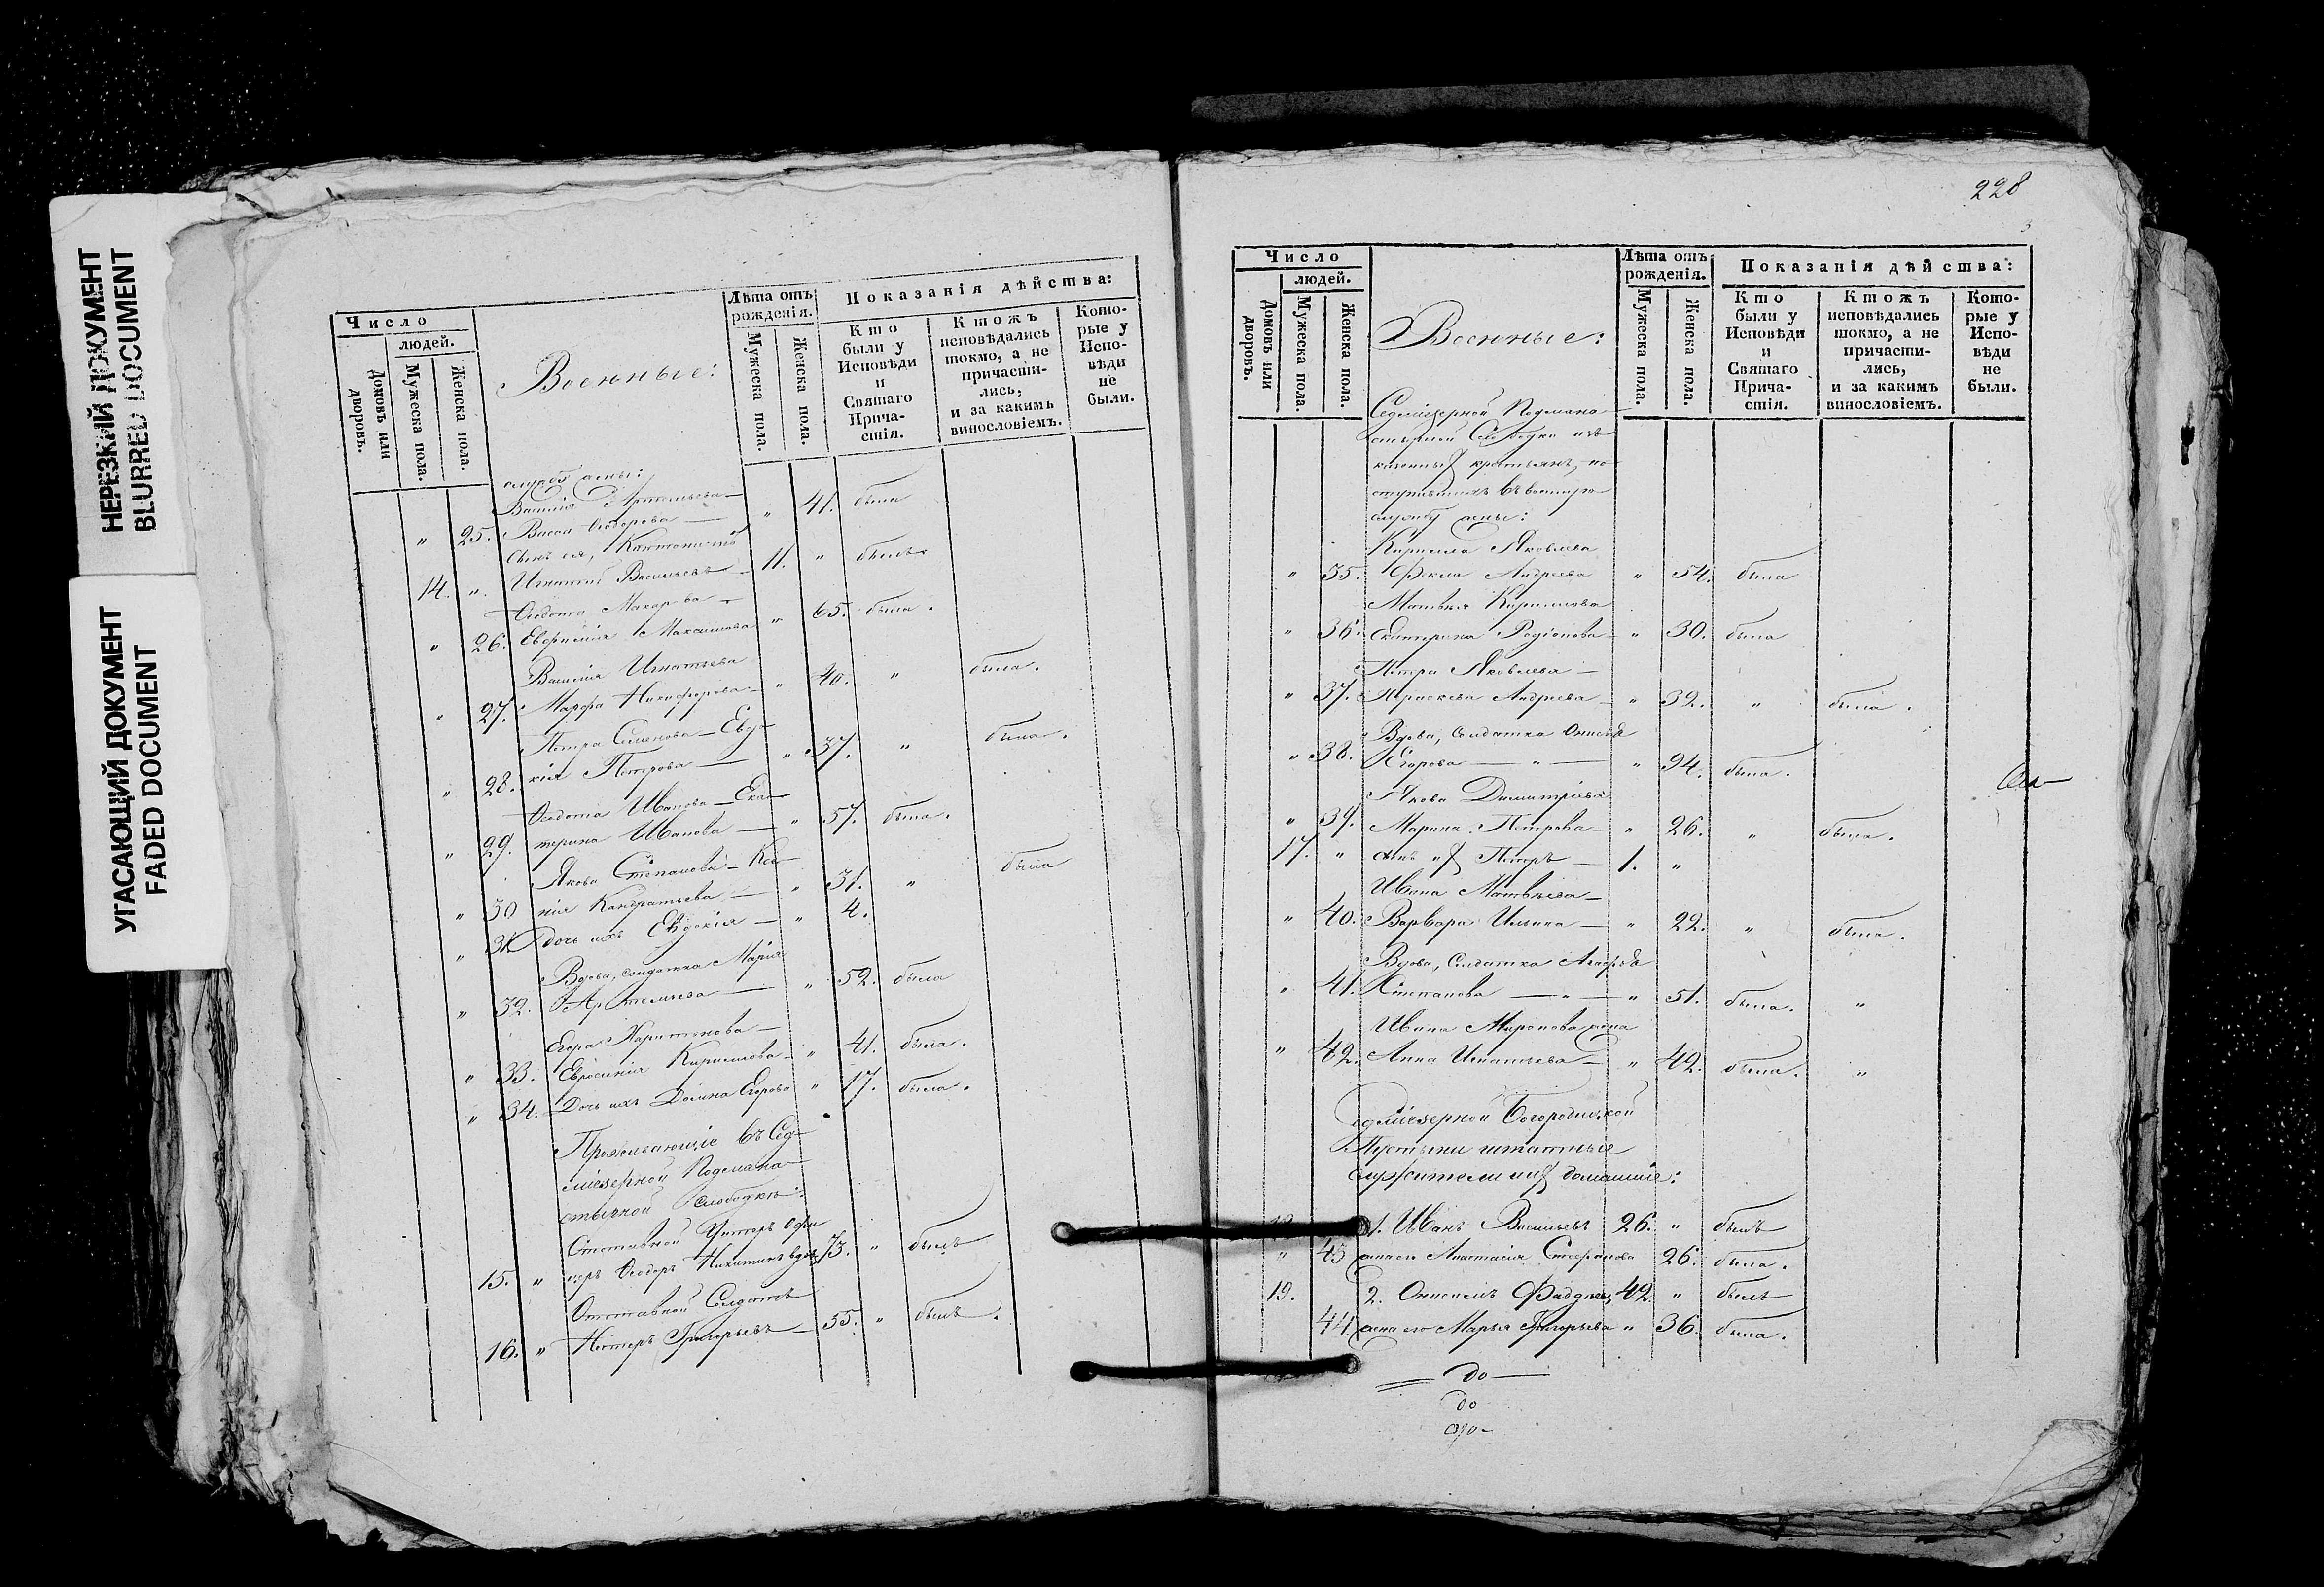 НЕРЕЗКИЙ ДОКУМЕНТ
BLURRED DOCUMENT
УГАСАЮЩИЙ ДОКУМЕНТ
FADED DOCUMENT
Число
людей.
Домовъ или дворовъ.
Мужеска пола.
Женска пола.
Военные:
Лѣта отъ рожденія.
Мужеска пола.
Женска пола.
Показанія дѣйства:
Кто были у Исповѣди и Святаго Причастія.
Ктожъ исповѣдались токмо, а не причастились, и за какимъ винословіемъ.
Которые у Исповѣди не были.
Василія Артемьева —
" 25. Васса Ѳедорова — " 41. была
Сынъ ея, Кантонистъ
14. " Игнатій Васильевъ — 11. " былъ
Ѳедота Макарова —
" 26. Евфимія Максимова " 65. была.
Василія Игнатьева
" 27. Марфа Никифорова — " 40. " была.
Петра Семенова — Евдо-
" 28. кія Петрова — " 37. " была.
Ѳедота Иванова — Ека-
" 29. терина Иванова — " 57. была.
Якова Степанова — Ксе-
" 30 нія Кандратьева — " 31. " была
" 31 дочь ихъ Евдокія — " 4.
Вдова, солдатка Марія
" 32. Артемьева — " 52. была
Егора Харитонова —
" 33. Евросинія Кирилова — " 41. была.
" 34. Дочь ихъ Домна Егорова " 17. была.
Проживающіе въ Сед-
міезерной Подмона-
стырной слободкѣ:
Отставной Унтеръ Офи
15. " церъ Ѳедоръ Никитинъ вдов. 73. " былъ
Отставной Солдатъ
16. " Нестеръ Григорьевъ — 55. " былъ.
228
Число
людей.
Домовъ или дворовъ.
Мужеска пола.
Женска пола.
Военные:
Лѣта отъ рожденія.
Мужеска пола.
Женска пола.
Показанія дѣйства:
Кто были у Исповѣди и Святаго Причастія.
Ктожъ исповѣдались токмо, а не причастились, и за какимъ винословіемъ.
Которые у Исповѣди не были.
Седміезерной Подмона-
стырной Слободки изъ
крестьянъ, по-
ступившихъ въ военную
службу жены:
Кирила Яковлева
" 35. Ѳекла Андреева " 54. была
Матвея Кирилова
" 36. Екатерина Родіонова — " 30. была
Петра Яковлева —
" 37. Параскева Андреева — " 32. " была.
Вдова, Солдатка
" 38. Егорова — " — " 94. была.
Якова Димитріева
" 39. Марина Петрова — " 26. " была.
17. " сынъ их Петръ — 1. "
Ивана Матвѣева —
" 40. Варвара Ильина — " 22. " была.
Вдова, Солдатка Агафья
" 41. Степанова — " — " 51. была. "
Ивана Миронова жена
" 42. Анна Игнатьева — " 42. была. "
Седміезерной Богородицкой
Пустыни штатные
служители и их домашніе:
1. Иванъ Васильевъ 26. " былъ
" 43 жена его Анастасія Стефанова 26. была.
19. 2. Онисимъ Фаддеевъ 42. " былъ
44. жена его Марья Григорьева " 36. была.